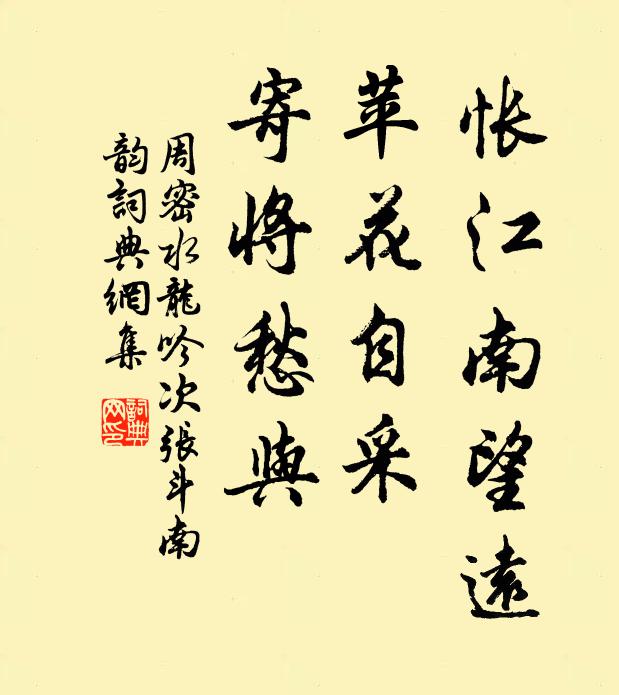 悵江南望遠
苹花自采
寄將愁與
周密水龍吟次張斗南
韵詞典網集
詞典網印